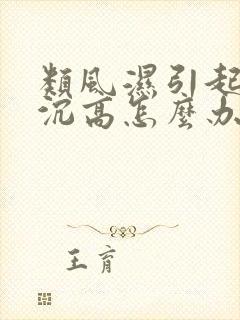 類風濕引起
沉高怎麼办
王育